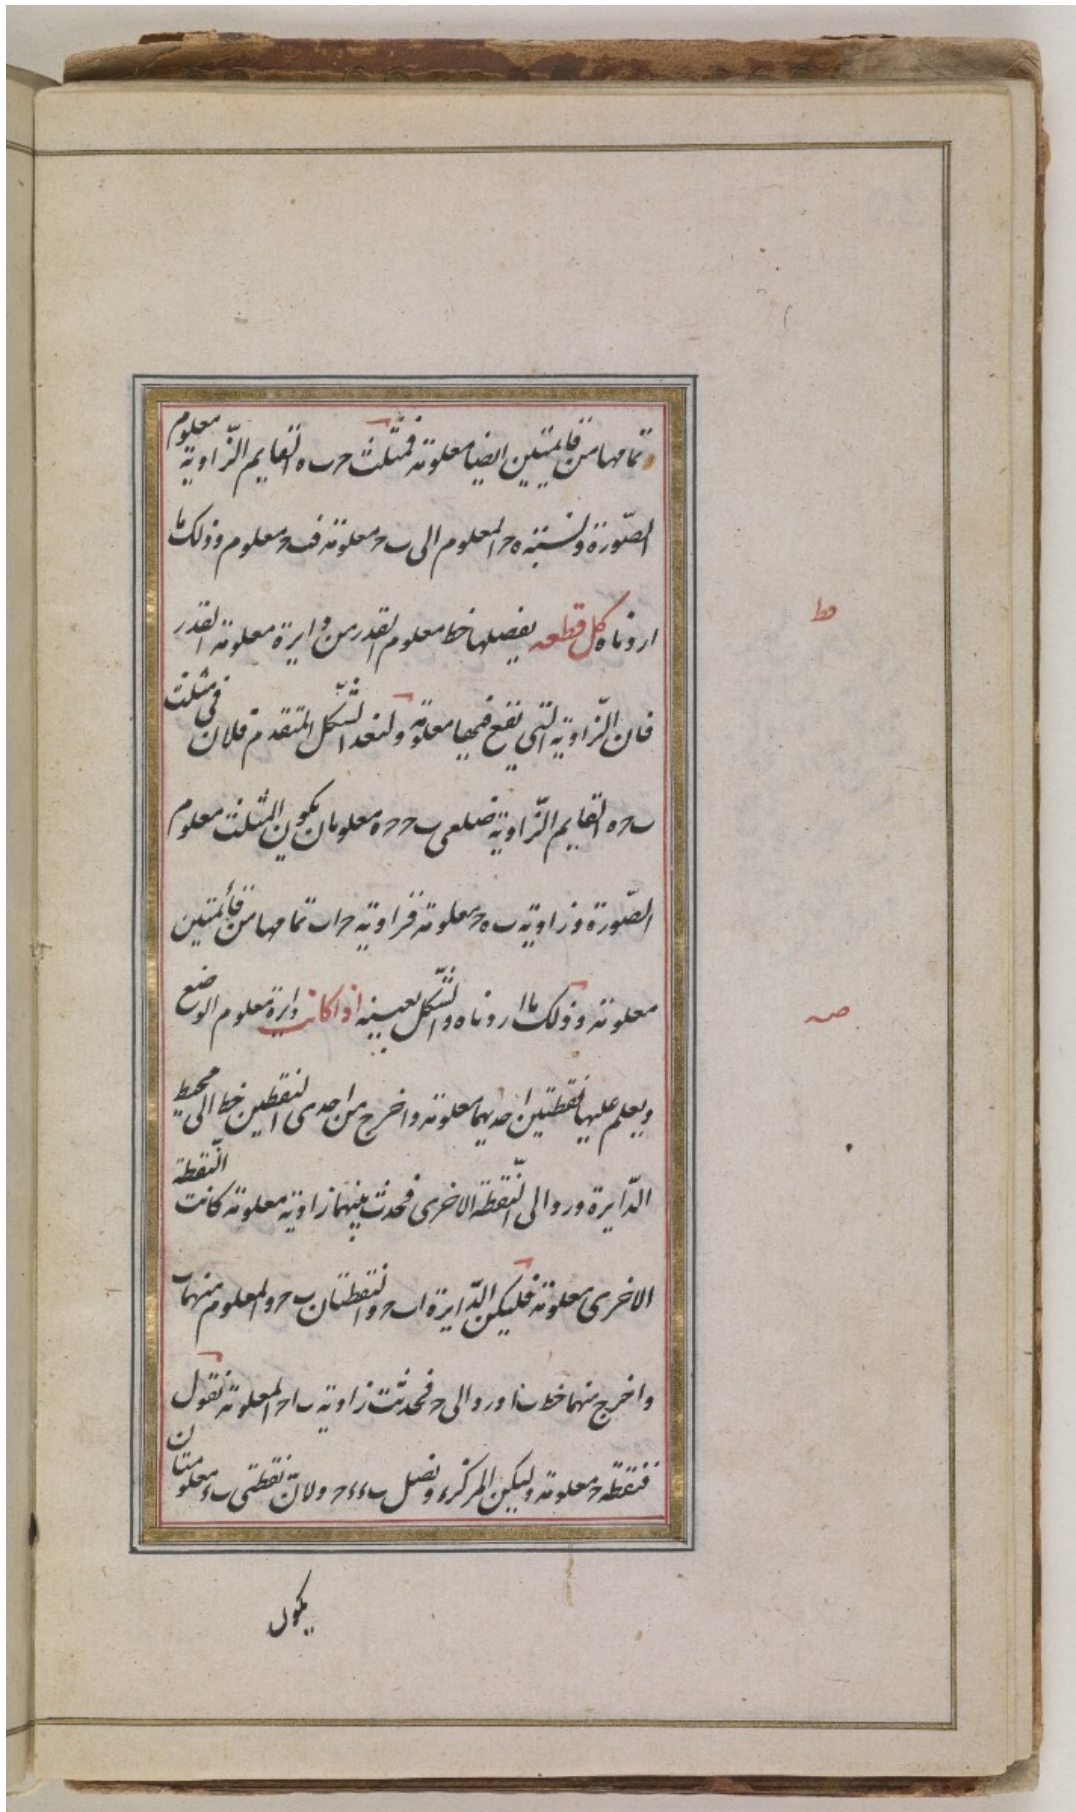 وتمامها من قائمتين ايضا معلومة فمثلث حب ه القايم الزّاوية معلوم
الصّورة ونسبة ه ح المعلوم الى ب ح معلومة فب ح معلوم وذلك ما
اردناه كل قطعه يفصلها خط معلوم القدر من دايرة معلومة القدر
مط
فان الزّاوية التى تقع فيها معلومة ولنعد الشّكل المتقدم فلان فى مثلث
ب ح ه القايم الزّاوية ضلعى ب ح ح ه معلومان يكون المثلث معلوم
الصّورة وزاوية ب ه ح معلومة فزاوية ح ا ب تمامها من قائمتين
معلومة وذلك ما اردناه والشّكل بعينه اذا كانت دايرة معلوم الوضع
صه
ويعلم عليها نقطتين احديهما معلومة واخرج من احدى النقطتين خط الى محيط
الدّايرة ورد الى النّقطة الاخرى فحدث بينهما زاوية معلومة كانت النّقطة
الاخرى معلومة فليكن الدّايرة ا ب ح والنقطتان ب ح والمعلوم منهما ب
واخرج منهما خط ب ا ورد الى ح فحدثت زاوية ب ا ح المعلومة نقول
فنقطة ح معلومة وليكن المركز ء ونصل ب ء ء ح ولانّ نقطتى ب ء معلومتان
يكون